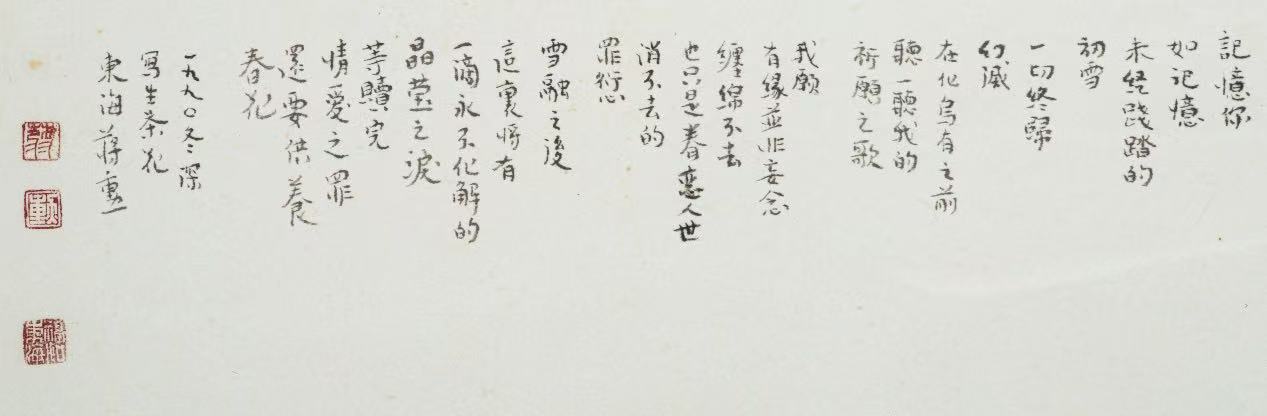 記憶你
如記憶
未經踐踏的
初雪
一切終歸
幻滅
在化烏有之前
聽一聽我的
祈願之歌
我願
有緣並非妄念
纏綿不去
也只是眷戀人世
消不去的
罪衍心
雪融之後
這裏將有
一滴永不化解的
晶瑩之淚
等贖完
情愛之罪
還要供養
春花
一九九〇冬深
寫生茶花
東海蔣勳